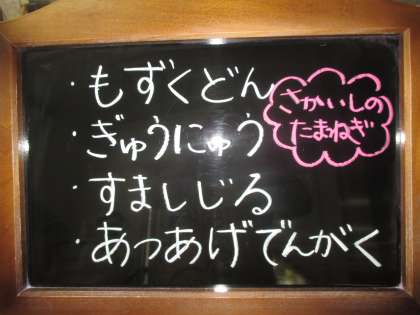 ・もずくどん
・ぎゅうにゅう
・すましじる
・あつあげでんがく
さかいしの
たまねぎ